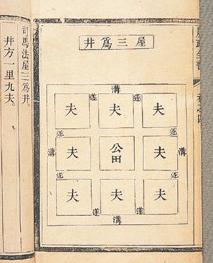 屋三爲井
溝
遂 遂
夫 夫 夫
遂 遂
溝 夫 公田 夫 溝
遂 遂
夫 夫 夫
遂 遂
溝
司馬法屋三爲井
井方一里九夫